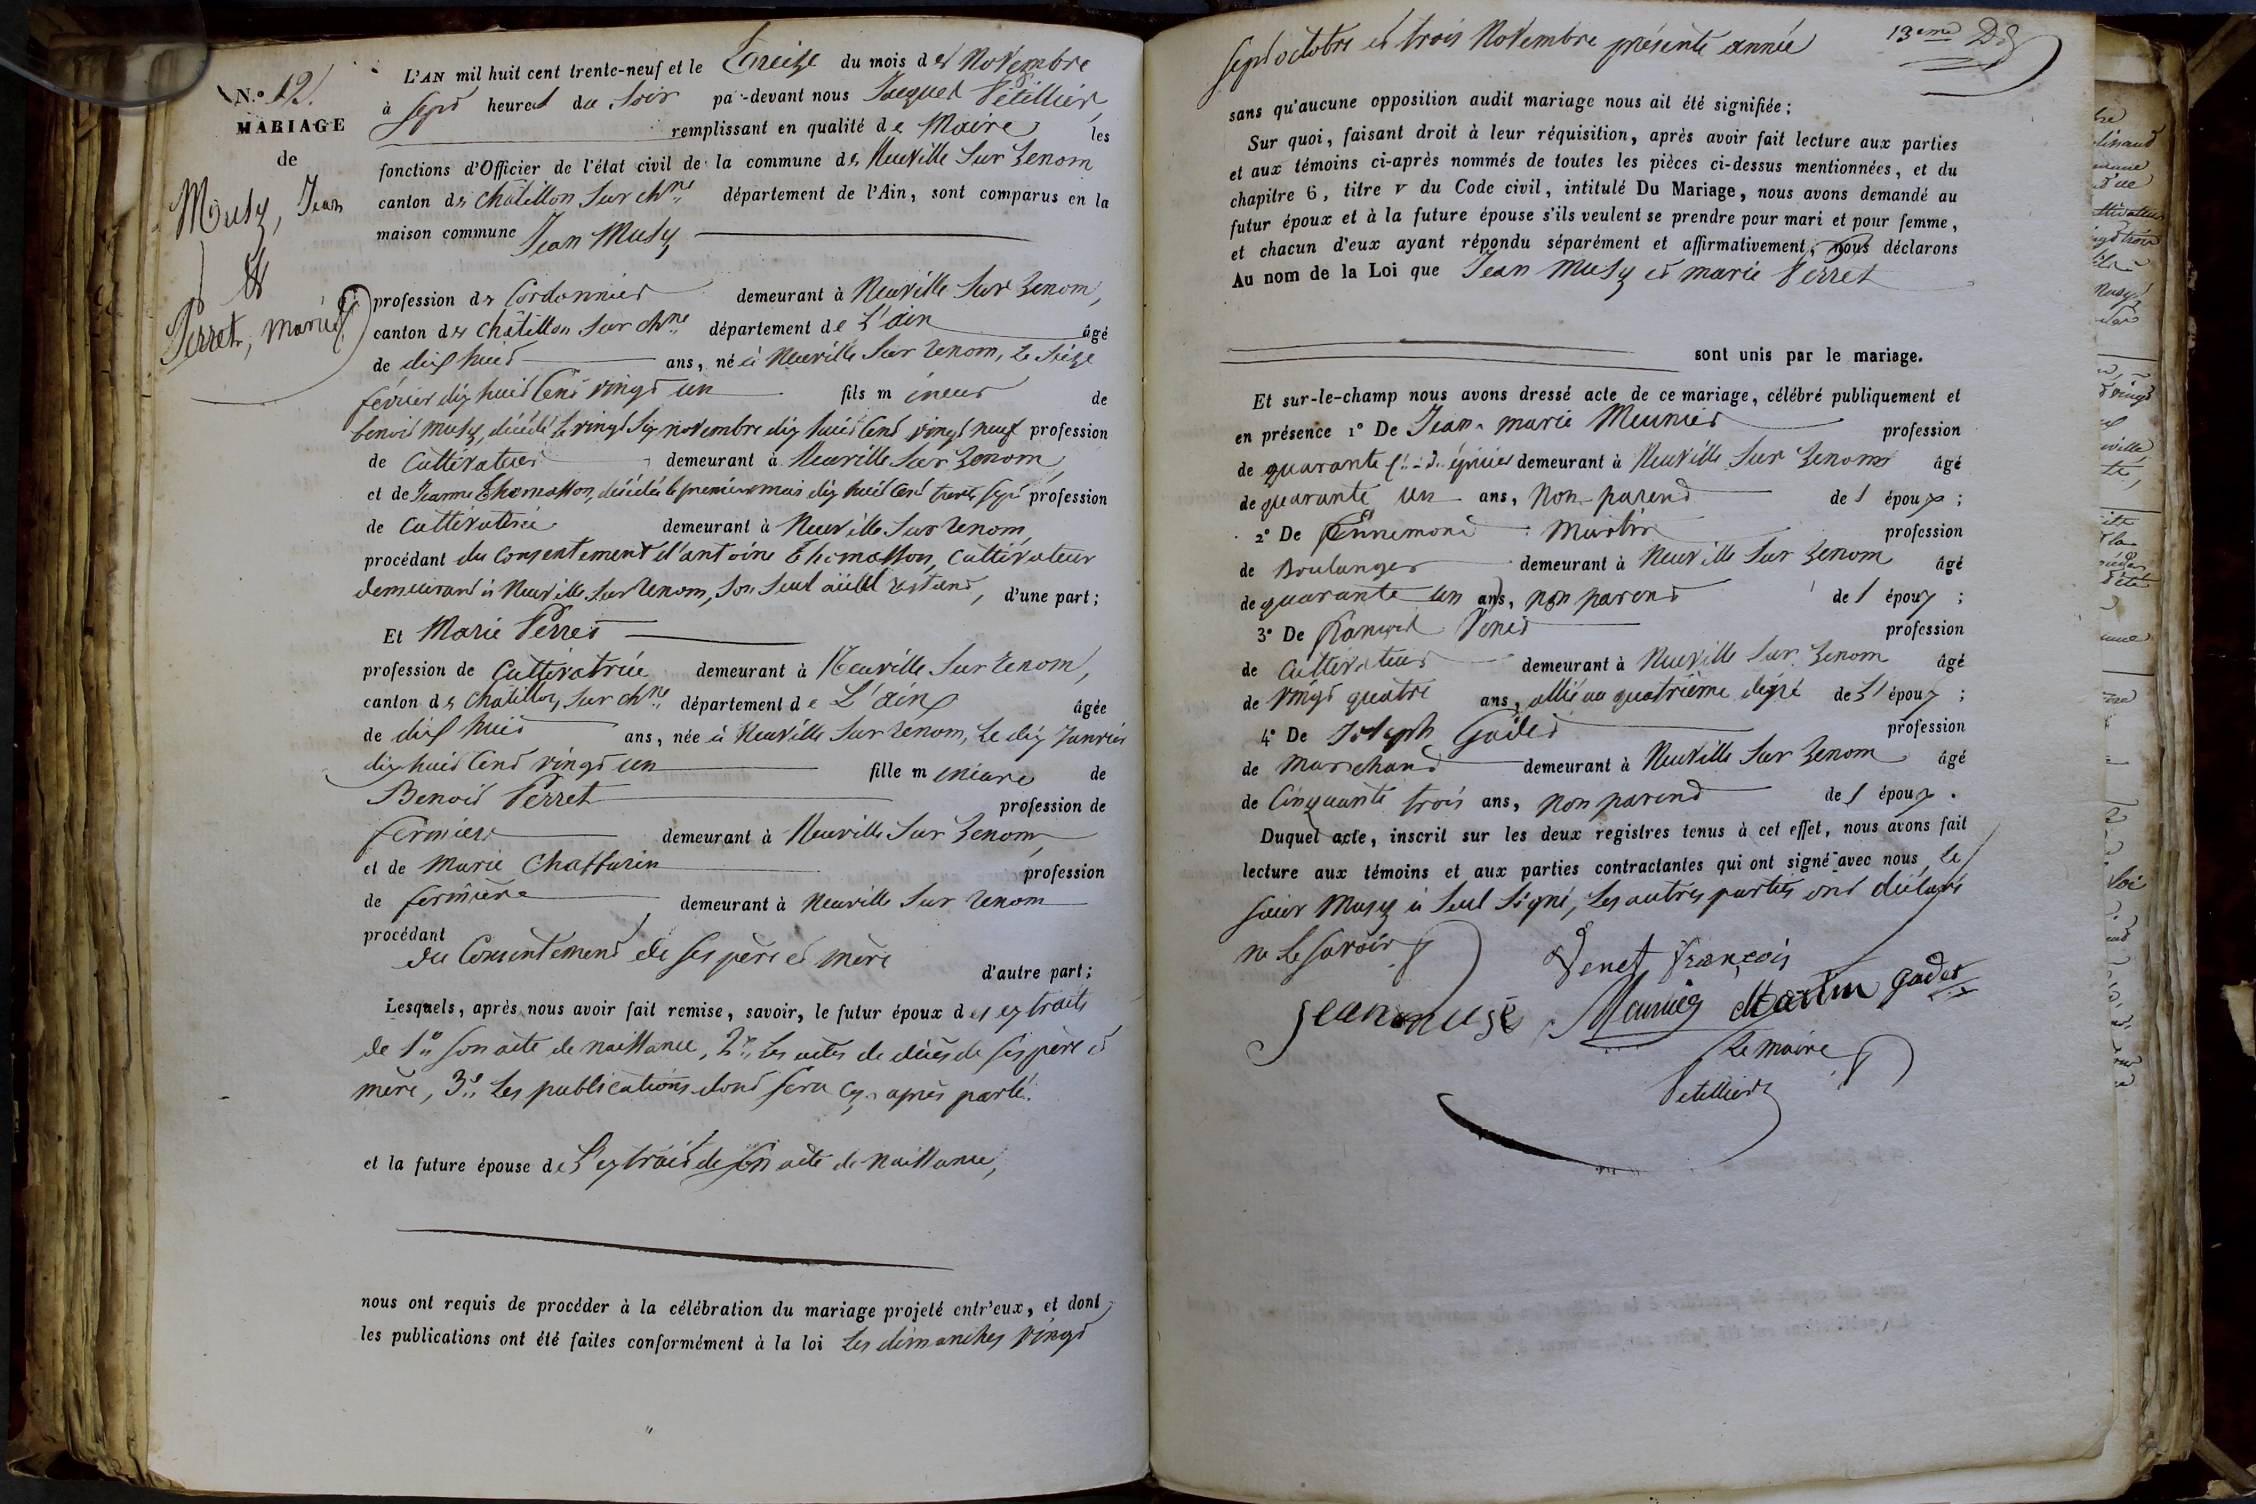 N.° 12.
MARIAGE
de
Musy, Jean
&
Perret, marie
L'AN mil huit cent trente-neuf et le treize du mois de Novembre
à sept heures du soir pa-devant nous Jacques Petillier,
remplissant en qualité de Maire les
fonctions d'Officier de l'état civil de la commune de Neuville sur Renom
canton de châtillon sur chne département de l'Ain, sont comparus en la
maison commune Jean Musy
profession de Cordonnier demeurant à Neuville sur Renom,
canton de châtillon sur chne département de L'ain âgé
de dix huit ans, né à Neuville sur Renom, le seize
février dix huit cent vingt un fils mineur de
benoit musy, décédé le vingt six novembre dix huit cent vingt neuf profession
de Cultivateur demeurant à Neuville sur Renom,
et de Jeanne Thomasson, décédée le premier mai dix huit cent trente sept profession
de Cultivatrice demeurant à Neuville sur Renom
procédant du consentement d'antoine Thomasson, cultivateur
demeurant à Neuville sur Renom, son seul aïeul restant, d'une part;
Et Marie Perret
profession de Cultivatrice demeurant à Neuville sur Renom,
canton de châtillon sur chne département de L'ain âgée
de dix huit ans, née à Neuville sur Renom, le dix Janvier
dix huit cent vingt un fille mineure de
Benoit Perret profession de
fermier demeurant à Neuville sur Renom,
et de Marie Chaffurin profession
de fermière demeurant à Neuville sur Renom
procédant
du Consentement de ses père et mère
d'autre part;
Lesquels, après nous avoir fait remise, savoir, le futur époux des extraits
de 1° son acte de naissance, 2° les actes de décès de ses père et
mère, 3° Les publications dont sera cy-après parlé.
et la future épouse de L'extrait de son acte de naissance,
nous ont requis de procéder à la célébration du mariage projeté entr'eux, et dont
les publications ont été faites conformément à la loi Les dimanches vingt
sept octobre et trois Novembre présente année
13eme
sans qu'aucune opposition audit mariage nous ait été signifiée;
Sur quoi, faisant droit à leur réquisition, après avoir fait lecture aux parties
et aux témoins ci-après nommés de toutes les pièces ci-dessus mentionnées, et du
chapitre 6, titre v du Code civil, intitulé Du Mariage, nous avons demandé au
futur époux et à la future épouse s'ils veulent se prendre pour mari et pour femme,
et chacun d'eux ayant répondu séparément et affirmativement, nous déclarons
Au nom de la Loi que Jean Musy et marie Perret
sont unis par le mariage.
Et sur-le-champ nous avons dressé acte de ce mariage, célébré publiquement et
en présence 1° De Jean-marie Meunier profession
de épicier demeurant à Neuville sur Renom âgé
de quarante un ans, Non parent de l'époux;
2° De Ennemond Martin profession
de Boulanger demeurant à Neuville sur Renom âgé
de quarante un ans, non parent de l'époux;
3° De françois Venet profession
de Cultivateur demeurant à Neuville sur Renom âgé
de vingt quatre ans, allié au quatrième degré de L'époux;
4° De Joseph Gadet profession
de Marchand demeurant à Neuville sur Renom âgé
de Cinquante trois ans, non parent de l'époux.
Duquel acte, inscrit sur les deux registres tenus à cet effet, nous avons fait
lecture aux témoins et aux parties contractantes qui ont signé avec nous, le
sieur Musy a seul signé, Les autres parties ont déclaré
ne le savoir
Venet françois
jean musy Meunier Martin gadet
Le maire
Petillier